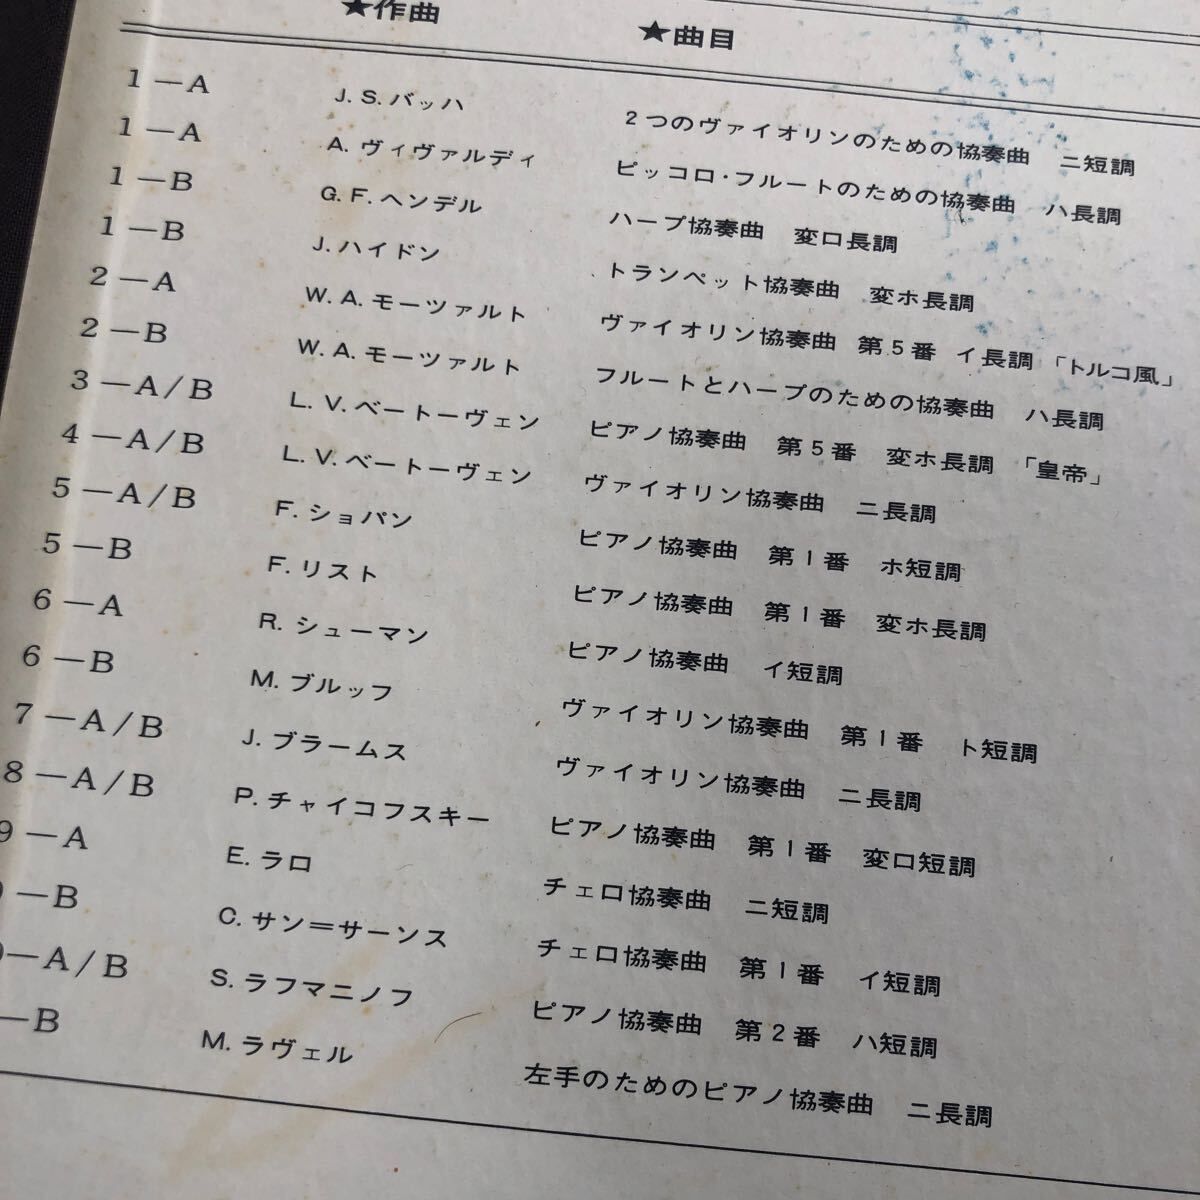 ★作曲 ★曲目
1－A J. S. バッハ 2つのヴァイオリンのための協奏曲 ニ短調
1－A A. ヴィヴァルディ ピッコロ・フルートのための協奏曲 ハ長調
1－B G. F. ヘンデル ハープ協奏曲 変ロ長調
1－B J. ハイドン トランペット協奏曲 変ホ長調
2－A W. A. モーツァルト ヴァイオリン協奏曲 第5番 イ長調 「トルコ風」
2－B W. A. モーツァルト フルートとハープのための協奏曲 ハ長調
3－A/B L. V. ベートーヴェン ピアノ協奏曲 第5番 変ホ長調 「皇帝」
4－A/B L. V. ベートーヴェン ヴァイオリン協奏曲 ニ長調
5－A/B F. ショパン ピアノ協奏曲 第1番 ホ短調
5－B F. リスト ピアノ協奏曲 第1番 変ホ長調
6－A R. シューマン ピアノ協奏曲 イ短調
6－B M. ブルッフ ヴァイオリン協奏曲 第1番 ト短調
7－A/B J. ブラームス ヴァイオリン協奏曲 ニ長調
8－A/B P. チャイコフスキー ピアノ協奏曲 第1番 変ロ短調
9－A E. ラロ チェロ協奏曲 ニ短調
－B C. サン＝サーンス チェロ協奏曲 第1番 イ短調
－A/B S. ラフマニノフ ピアノ協奏曲 第2番 ハ短調
－B M. ラヴェル 左手のためのピアノ協奏曲 ニ長調